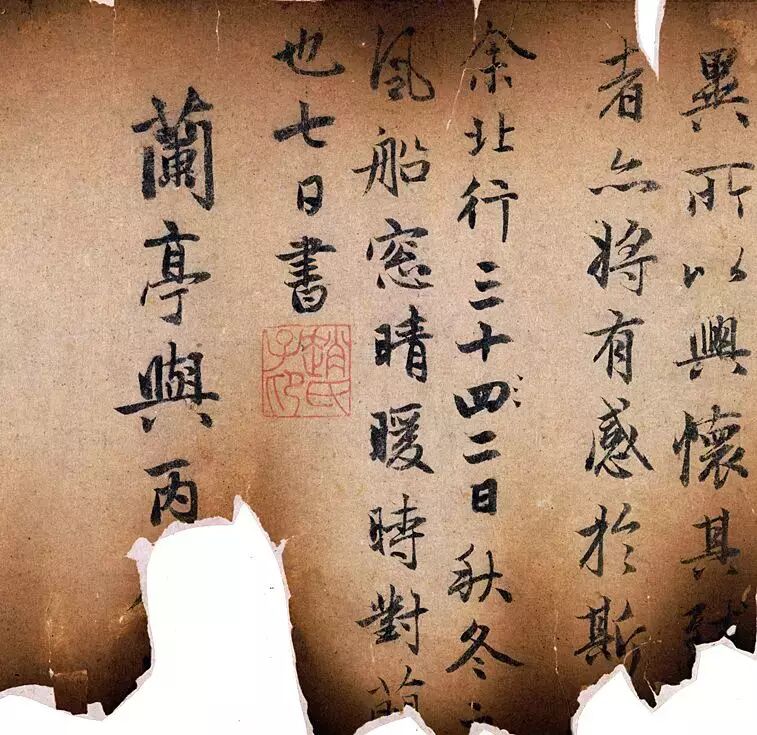 異所以興懷其致
者亦将有感於斯
余北行三十四二日秋冬之
風船窓晴暖時對蘭
也七日書
趙氏子印
蘭亭與丙